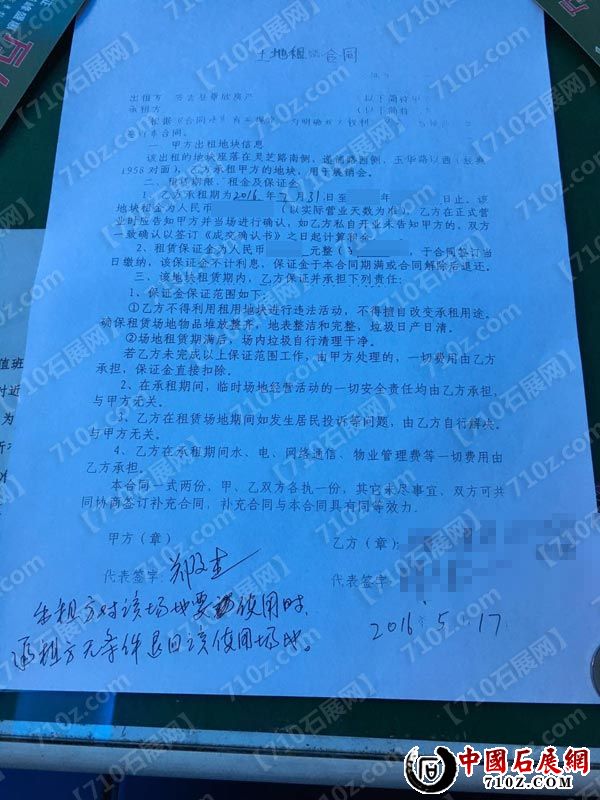 土地租赁合同
出租方 安吉县
(以下简称甲
承租方
(以下简称
根据《合同法》
签订本合同。
一 甲方出租地块信息
该出租的地块座落在灵芝路南侧，递铺路西侧，玉华路以西（
1958对面），乙方承租甲方的地块，用于展销会。
二、租赁期限、租金及保证金
1、乙方承租期为2016年7月31日至 年 日止。该
地块租金为人民币 （以实际营业天数为准），乙方在正式营
业时应告知甲方并当场进行确认，如乙方私自开业未告知甲方的，双方
一致确认以签订《成交确认书》之日起计算租金
2、租赁保证金为人民币 元整（ ，于合同签订当
日缴纳，该保证金不计利息，保证金于本合同期满或合同解除后退还。
三、该地块租赁期内，乙方保证并承担下列责任：
1、保证金保证范围如下：
①乙方不得利用租用地块进行违法活动，不得擅自改变承租用途。
确保租赁场地物品堆放整齐，地表整洁和完整，垃圾日产日清。
②场地租赁期满后，场内垃圾自行清理干净。
若乙方未完成以上保证范围工作，由甲方处理的，一切费用由乙方
承担，保证金直接扣除。
2、在承租期间，临时场地经营活动的一切安全责任均由乙方承担，
与甲方无关。
3、乙方在租赁场地期间如发生居民投诉等问题，由乙方自行解决，
与甲方无关。
4、乙方在承租期间水、电、网络通信、物业管理费等一切费用由
乙方承担。
本合同一式两份，甲、乙双方各执一份，其它未尽事宜、双方可共
同协商签订补充合同，补充合同与本合同具有同等效力。
甲方（章） 乙方（章）：
代表签字： 代表签字：
出租方对该场地要使用时，
承租方无条件退回该使用场地。
2016.5.17
值班
【710石展网】
710z.com
中國石展網
710Z.COM